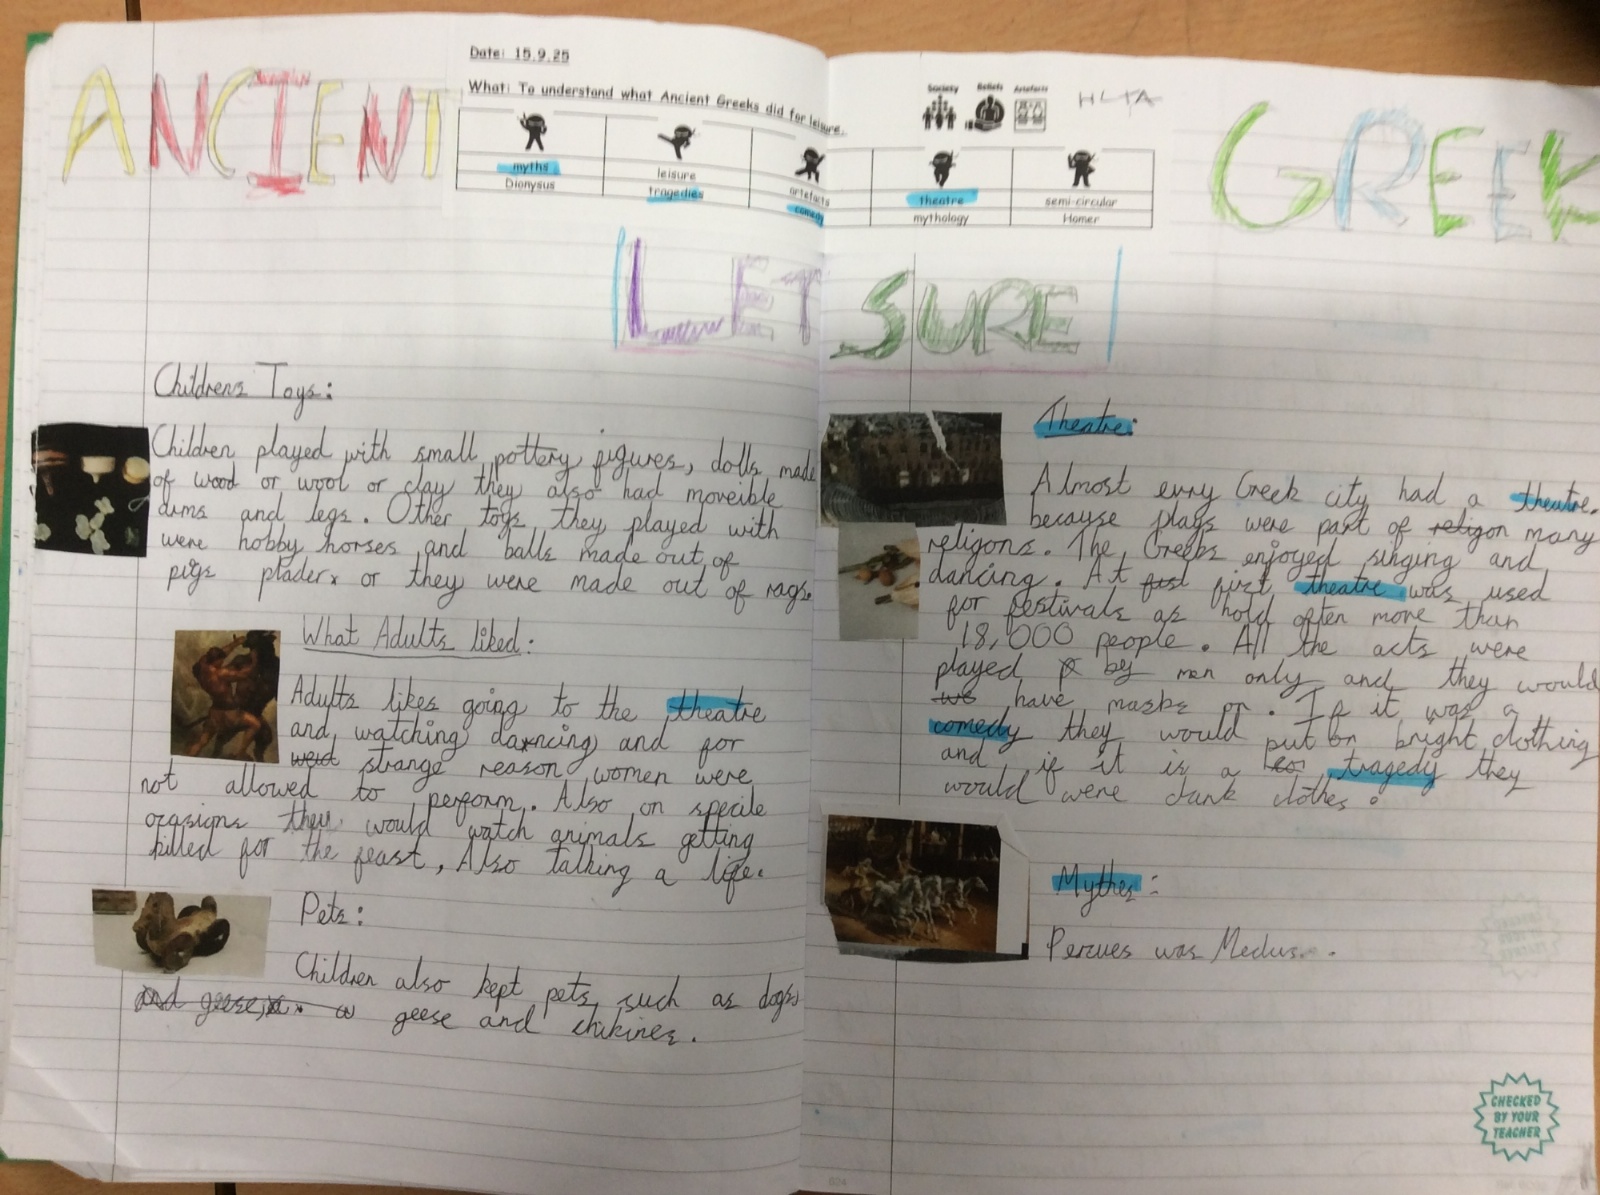 ANCIENT
Date: 15.9.25
What: To understand what Ancient Greeks did for leisure.
Society Beliefs Artefacts
HLTA
GREEK
myths leisure artefacts theatre semi-circular
Dionysus tragedies comedy mythology Homer
LEISURE
Childrens Toys:
Children played with small pottery figures, dolls made
of wood or wool or clay they also had moveible
arms and legs. Other toys they played with
were hobby horses and balls made out of
pigs plader or they were made out of rags.
What Adults liked:
Adults likes going to the theatre
and watching dancing and for
weid strange reason women were
not allowed to perform. Also on specile
orasigns they would watch animals getting
killed for the feast, Also talking a life.
Pets:
Children also kept pets such as dogs
and geese, a geese and chikines.
Theatre:
Almost evry Greek city had a theatre.
because plays were part of religon many
religons. The Greeks enjoyed singing and
dancing. At fust first theatre was used
for festivals as hold often more than
18,000 people. All the acts were
played by men only and they would
we have masks on. If it was a
comedy they would put on bright clothing
and if it is a tragedy they
would were dark clothes.
Mythes:
Percues was Medus..
CHECKED
BY YOUR
TEACHER